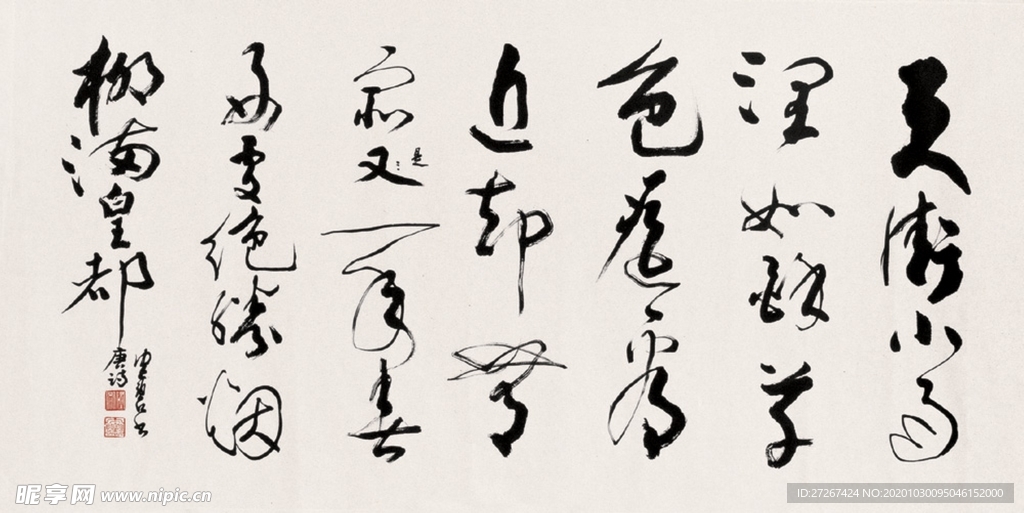 天街小雨
潤如酥草
色遥看
近却無
最又是一年春
好處絕勝烟
柳滿皇都
唐詩
昵享网 www.nipic.cn
ID:27267424 NO:20201030095046152000